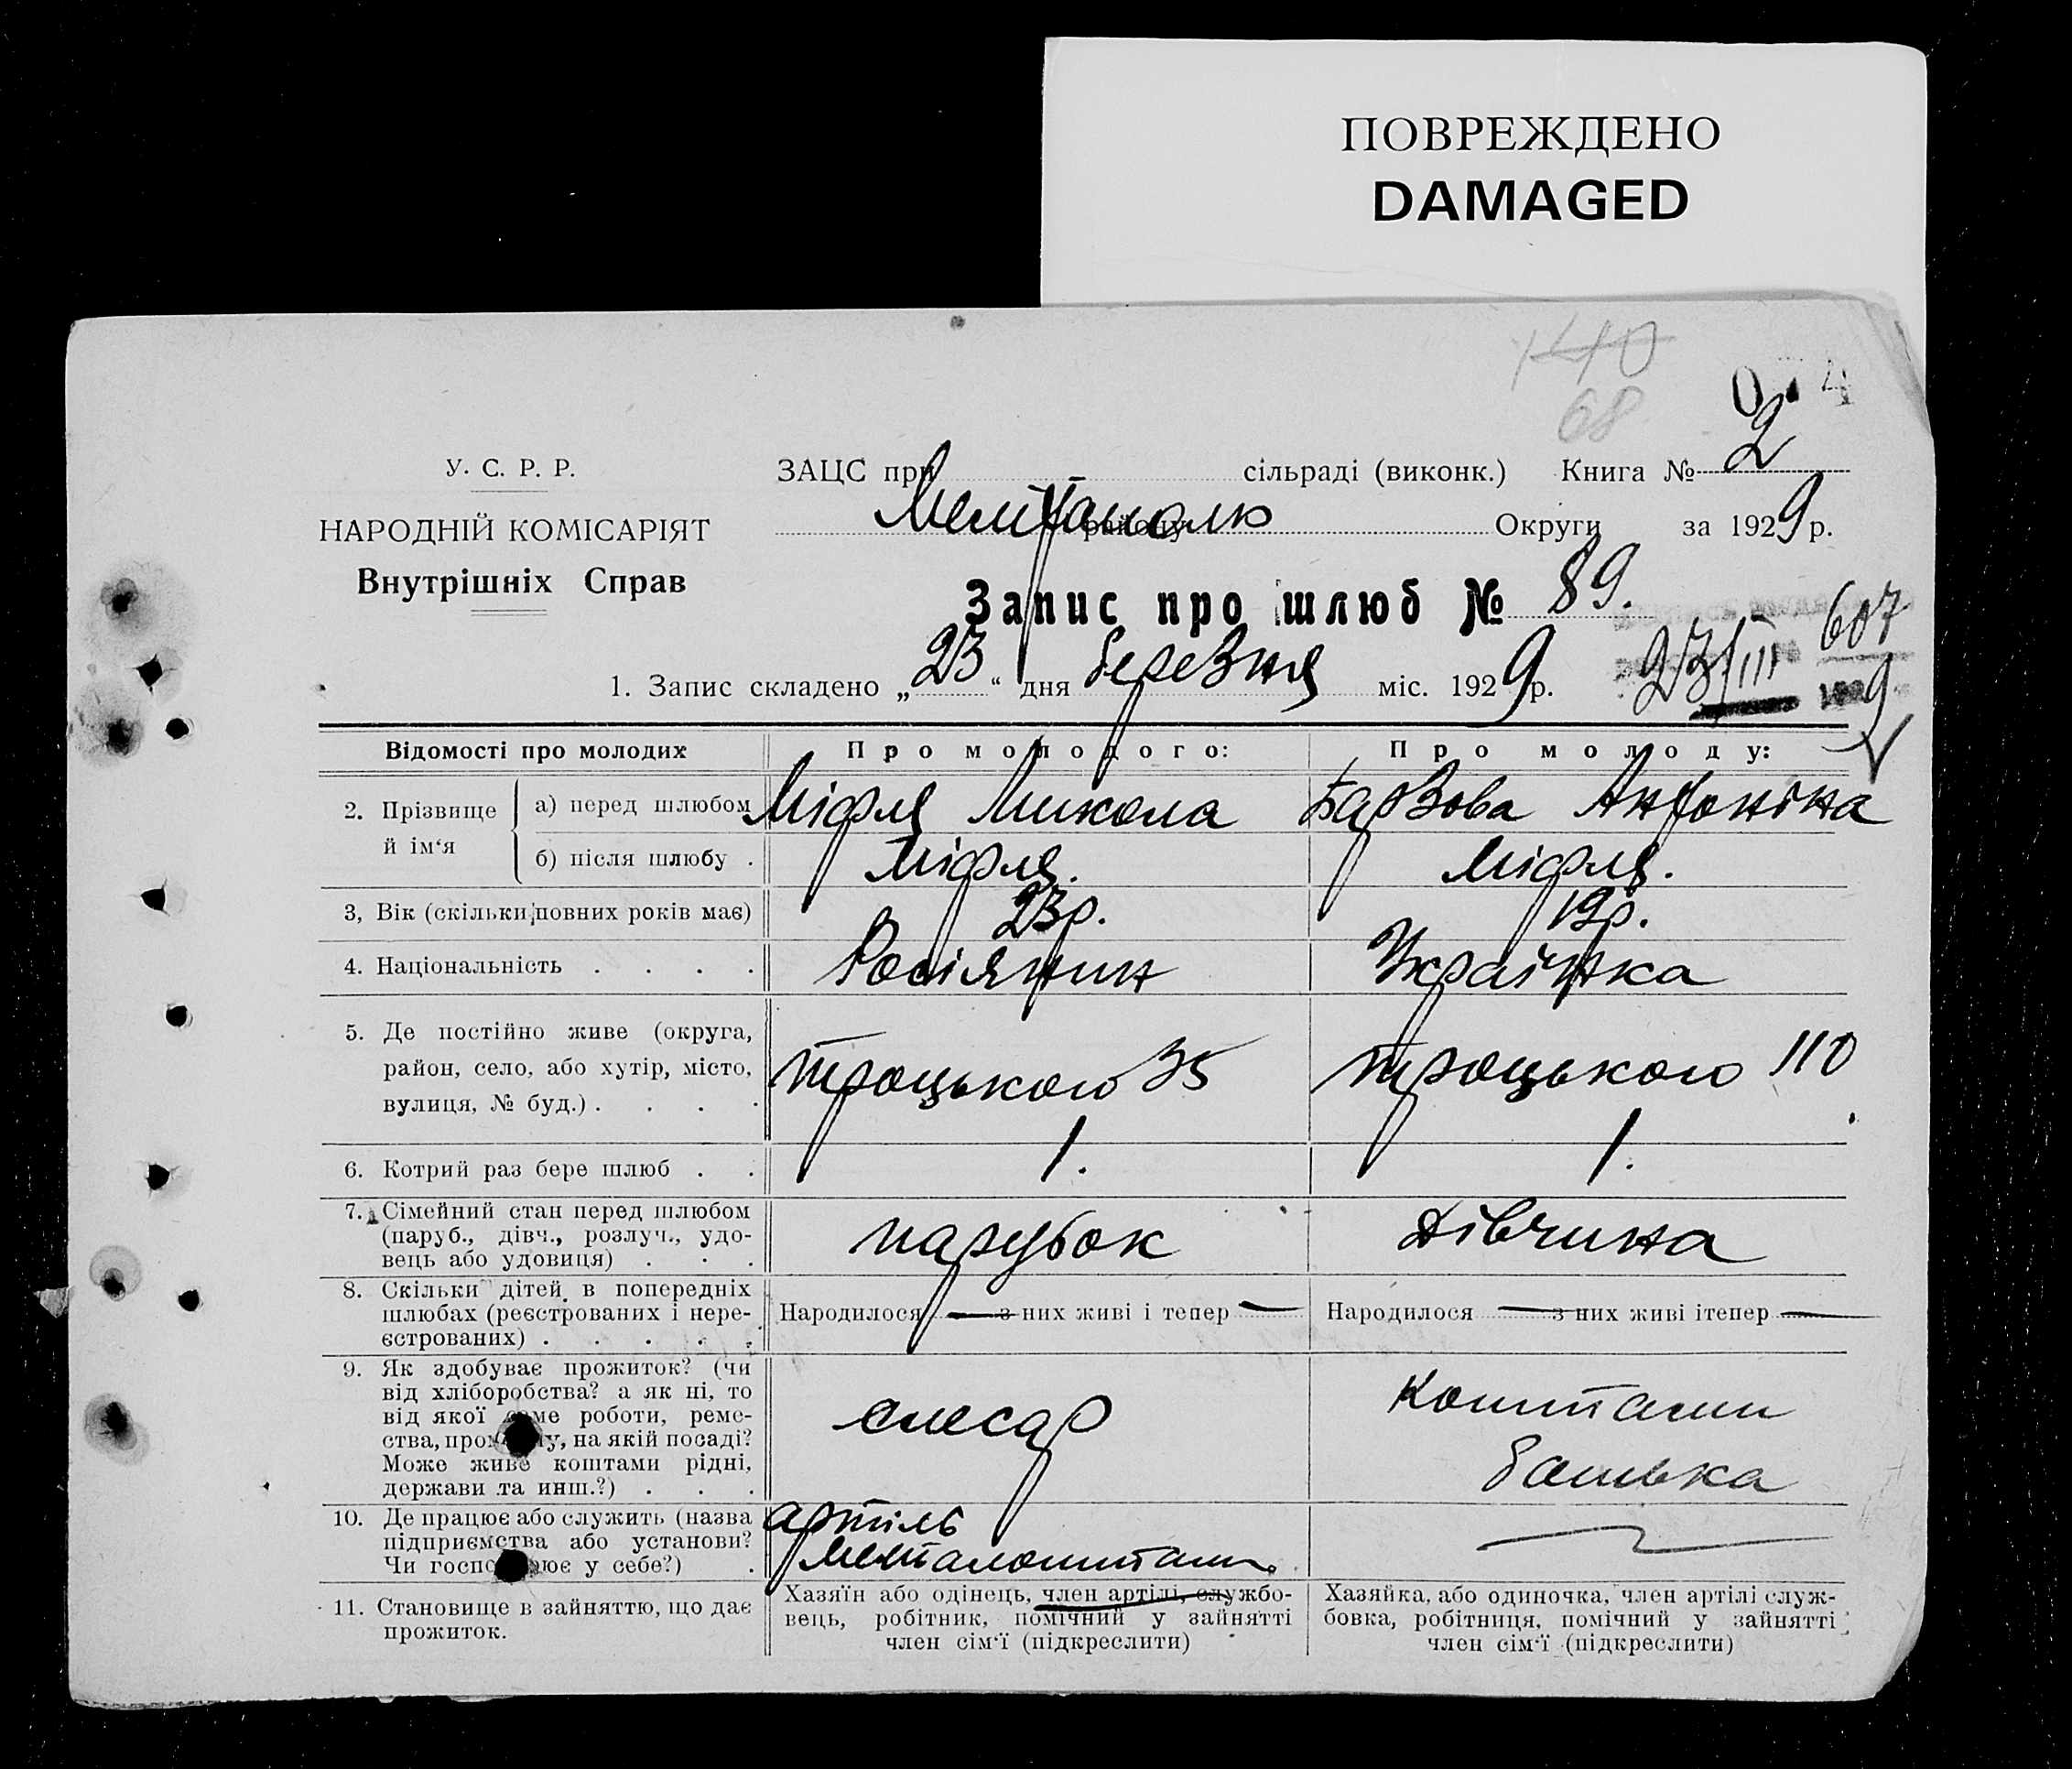 ПОВРЕЖДЕНО
DAMAGED
140
68
У. С. Р. Р.
НАРОДНІЙ КОМІСАРІЯТ
Внутрішніх Справ
ЗАЦС при сільраді (виконк.) Книга № 2
району Округи за 1929 р.
Запис про шлюб № 89.
607
23/III
9
1. Запис складено „23“ дня березня міс. 1929 р.
Відомості про молодих Про молодого: Про молоду:
2. Прізвище й ім‘я
а) перед шлюбом Міфля Микола Барзова Антоніна
б) після шлюбу . Міфля. Міфля.
3, Вік (скільки повних років має) 23р. 19р.
4. Національність . . . . Росіянин Українка
5. Де постійно живе (округа,
район, село, або хутір, місто,
вулиця, № буд.) . . . .
Троцького 35
Троцького 110
6. Котрий раз бере шлюб . . 1. 1.
7. Сімейний стан перед шлюбом
(паруб., дівч., розлуч., удо-
вець або удовиця) . . .
парубок
дівчина
8. Скільки дітей в попередніх
шлюбах (реєстрованих і нере-
єстрованих) . . . . .
Народилося — з них живі і тепер —
Народилося — з них живі ітепер —
9. Як здобуває прожиток? (чи
від хліборобства? а як ні, то
від якої саме роботи, реме-
ства, промислу, на якій посаді?
Може живе коштами рідні,
держави та инш.?) . . .
слюсар
Коштами
батька
10. Де працює або служить (назва
підприємства або установи?
Чи господарює у себе?) .
артіль
Металоштамп.
11. Становище в зайняттю, що дає
прожиток.
Хазяїн або одінець, член артілі, службо-
вець, робітник, помічний у зайнятті
член сім‘ї (підкреслити)
Хазяйка, або одиночка, член артілі служ-
бовка, робітниця, помічний у зайнятті
член сім‘ї (підкреслити)